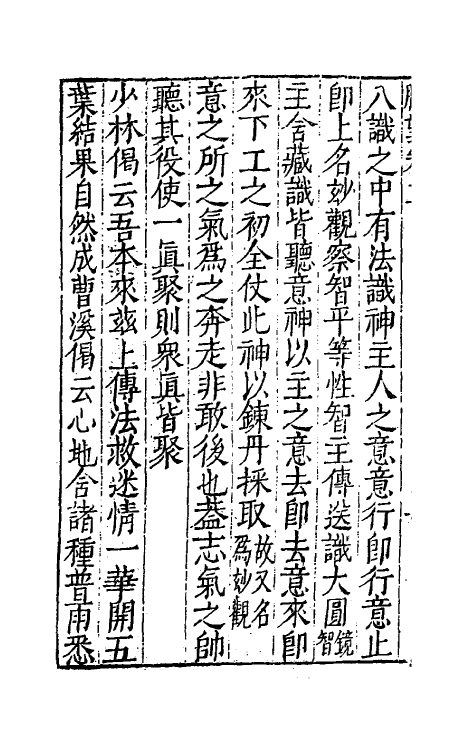 八識之中有法識神主人之意意行卽行意止
卽止名妙觀察智平等性智主傳送識大圓鏡智
主含藏識皆聽意神以主之意去卽去意來卽
來下工之初全仗此神以鍊丹採取故又名爲妙觀
意之所之氣爲之奔走非敢後也葢志氣之帥
聽其役使一眞聚則衆眞皆聚
少林偈云吾本來兹土傳法救迷情一華開五
葉結果自然成曹溪偈云心地含諸種普雨悉